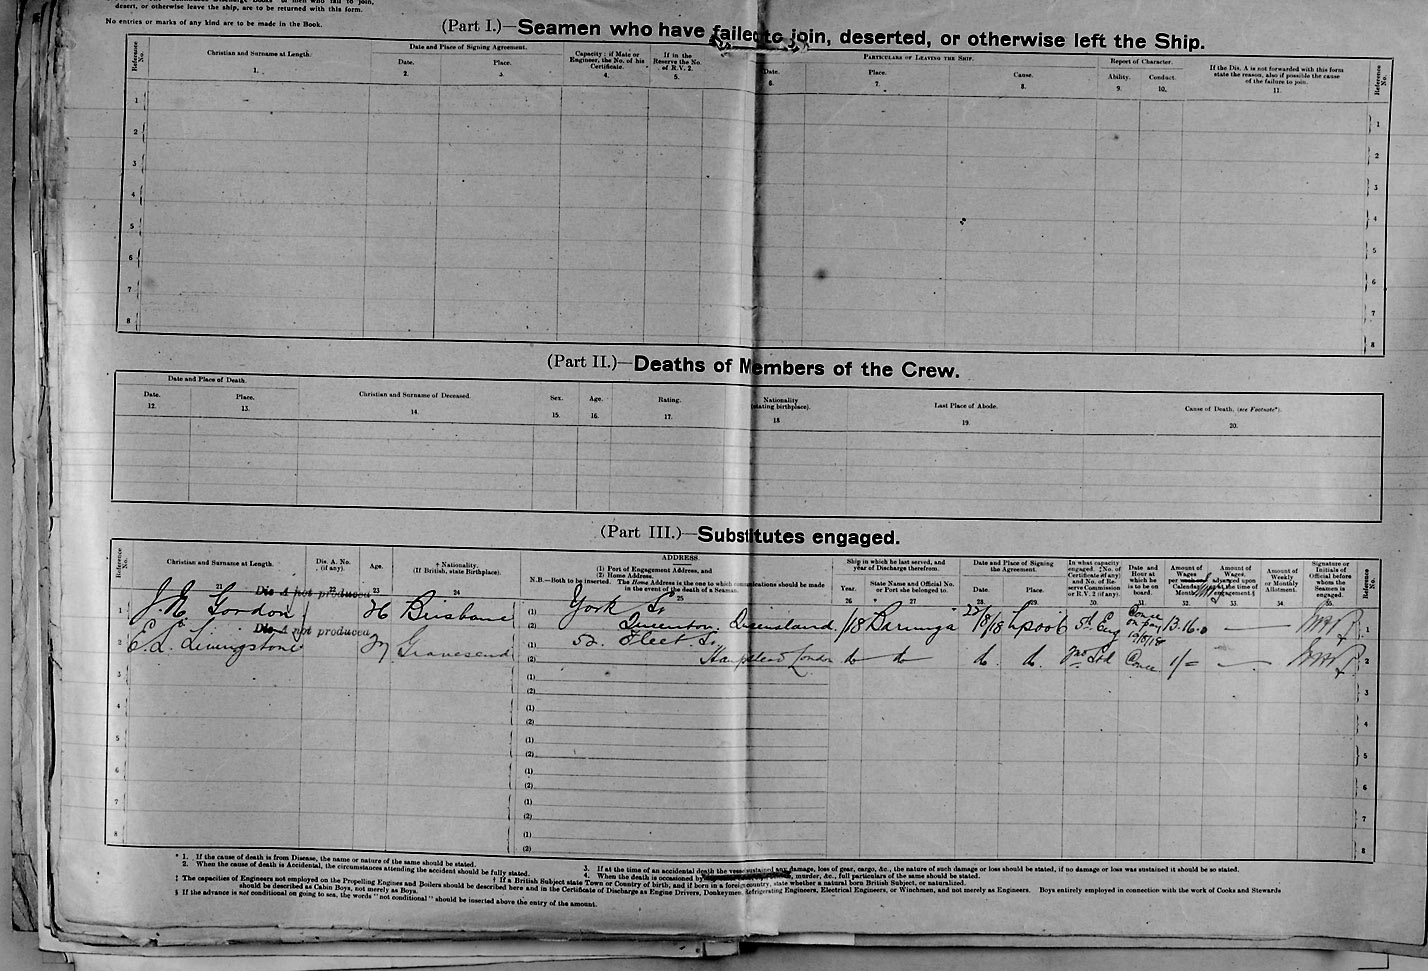 desert, or otherwise leave the ship, are to be returned with this form.
No entries or marks of any kind are to be made in the Book.
(Part I.)—Seamen who have failed to join, deserted, or otherwise left the Ship.
Reference No.
Christian and Surname at Length.
1.
Date and Place of Signing Agreement.
Date.
2.
Place.
3.
Capacity: if Mate or Engineer, the No. of his Certificate.
4.
If in the Reserve the No. of R.V. 2.
5.
Particulars of Leaving the Ship.
Date.
6.
Place.
7.
Cause.
8.
Report of Character.
Ability.
9.
Conduct.
10.
If the Dis. A is not forwarded with this form state the reason, also if possible the cause of the failure to join.
11.
Reference No.
1 1
2 2
3 3
4 4
5 5
6 6
7 7
8 8
(Part II.)—Deaths of Members of the Crew.
Date and Place of Death.
Date.
12.
Place.
13.
Christian and Surname of Deceased.
14.
Sex.
15.
Age.
16.
Rating.
17.
Nationality (stating birthplace).
18
Last Place of Abode.
19.
Cause of Death. (see Footnote*).
20.
(Part III.)—Substitutes engaged.
Reference No.
Christian and Surname at Length.
21
Dis. A. No. (if any).
22
Age.
23
† Nationality. (If British, state Birthplace).
24
ADDRESS.
(1) Port of Engagement Address, and
(2) Home Address.
N.B.—Both to be inserted. The Home Address is the one to which communications should be made in the event of the death of a Seaman.
25
Ship in which he last served, and year of Discharge therefrom.
Year.
26
State Name and Official No. or Port she belonged to.
27
Date and Place of Signing the Agreement.
Date.
28.
Place.
29.
In what capacity engaged. ‡No. of Certificate (if any) and No. of Reserve Commission or R.V. 2 (if any).
30.
Date and Hour at which he is to be on board.
31.
Amount of Wages per Calendar Month.
32.
Amount of Wages, advanced upon at the time of engagement.§
33.
Amount of Weekly or Monthly Allotment.
34.
Signature or Initials of Official before whom the Seaman is engaged.
35.
Reference No.
Dis. A not produced
1 Gordon 26 Brisbane (1) York St
(2) Queenton. Queensland. 1/18 Barunga 22/8/18 Lpool 5th Eng Once on pay 13.16.0 1
Dis. A not produced
2 E. L. Livingstone Gravesend (1) 52. Fleet
(2) Hampstead London do do do. do. Once 1/= 2
3 (1) (2) 3
4 (1) (2) 4
5 (1) (2) 5
6 (1) (2) 6
7 (1) (2) 7
8 (1) (2) 8
* 1. If the cause of death is from Disease, the name or nature of the same should be stated.
2. When the cause of death is Accidental, the circumstances attending the accident should be fully stated.
3. If at the time of an accidental death the vessel sustained any damage, loss of gear, cargo, &c., the nature of such damage or loss should be stated, if no damage or loss was sustained it should be so stated.
4. When the death is occasioned by murder, &c., full particulars of the same should be stated.
† If a British Subject state Town or Country of birth, and if born in a foreign country, state whether a natural born British Subject, or naturalized.
‡ The capacities of Engineers not employed on the Propelling Engines and Boilers should be described here and in the Certificate of Discharge as Engine Drivers, Donkeymen, Refrigerating Engineers, Electrical Engineers, or Winchmen, and not merely as Engineers. Boys entirely employed in connection with the work of Cooks and Stewards
should be described as Cabin Boys, not merely as Boys.
§ If the advance is not conditional on going to sea, the words "not conditional" should be inserted above the entry of the amount.